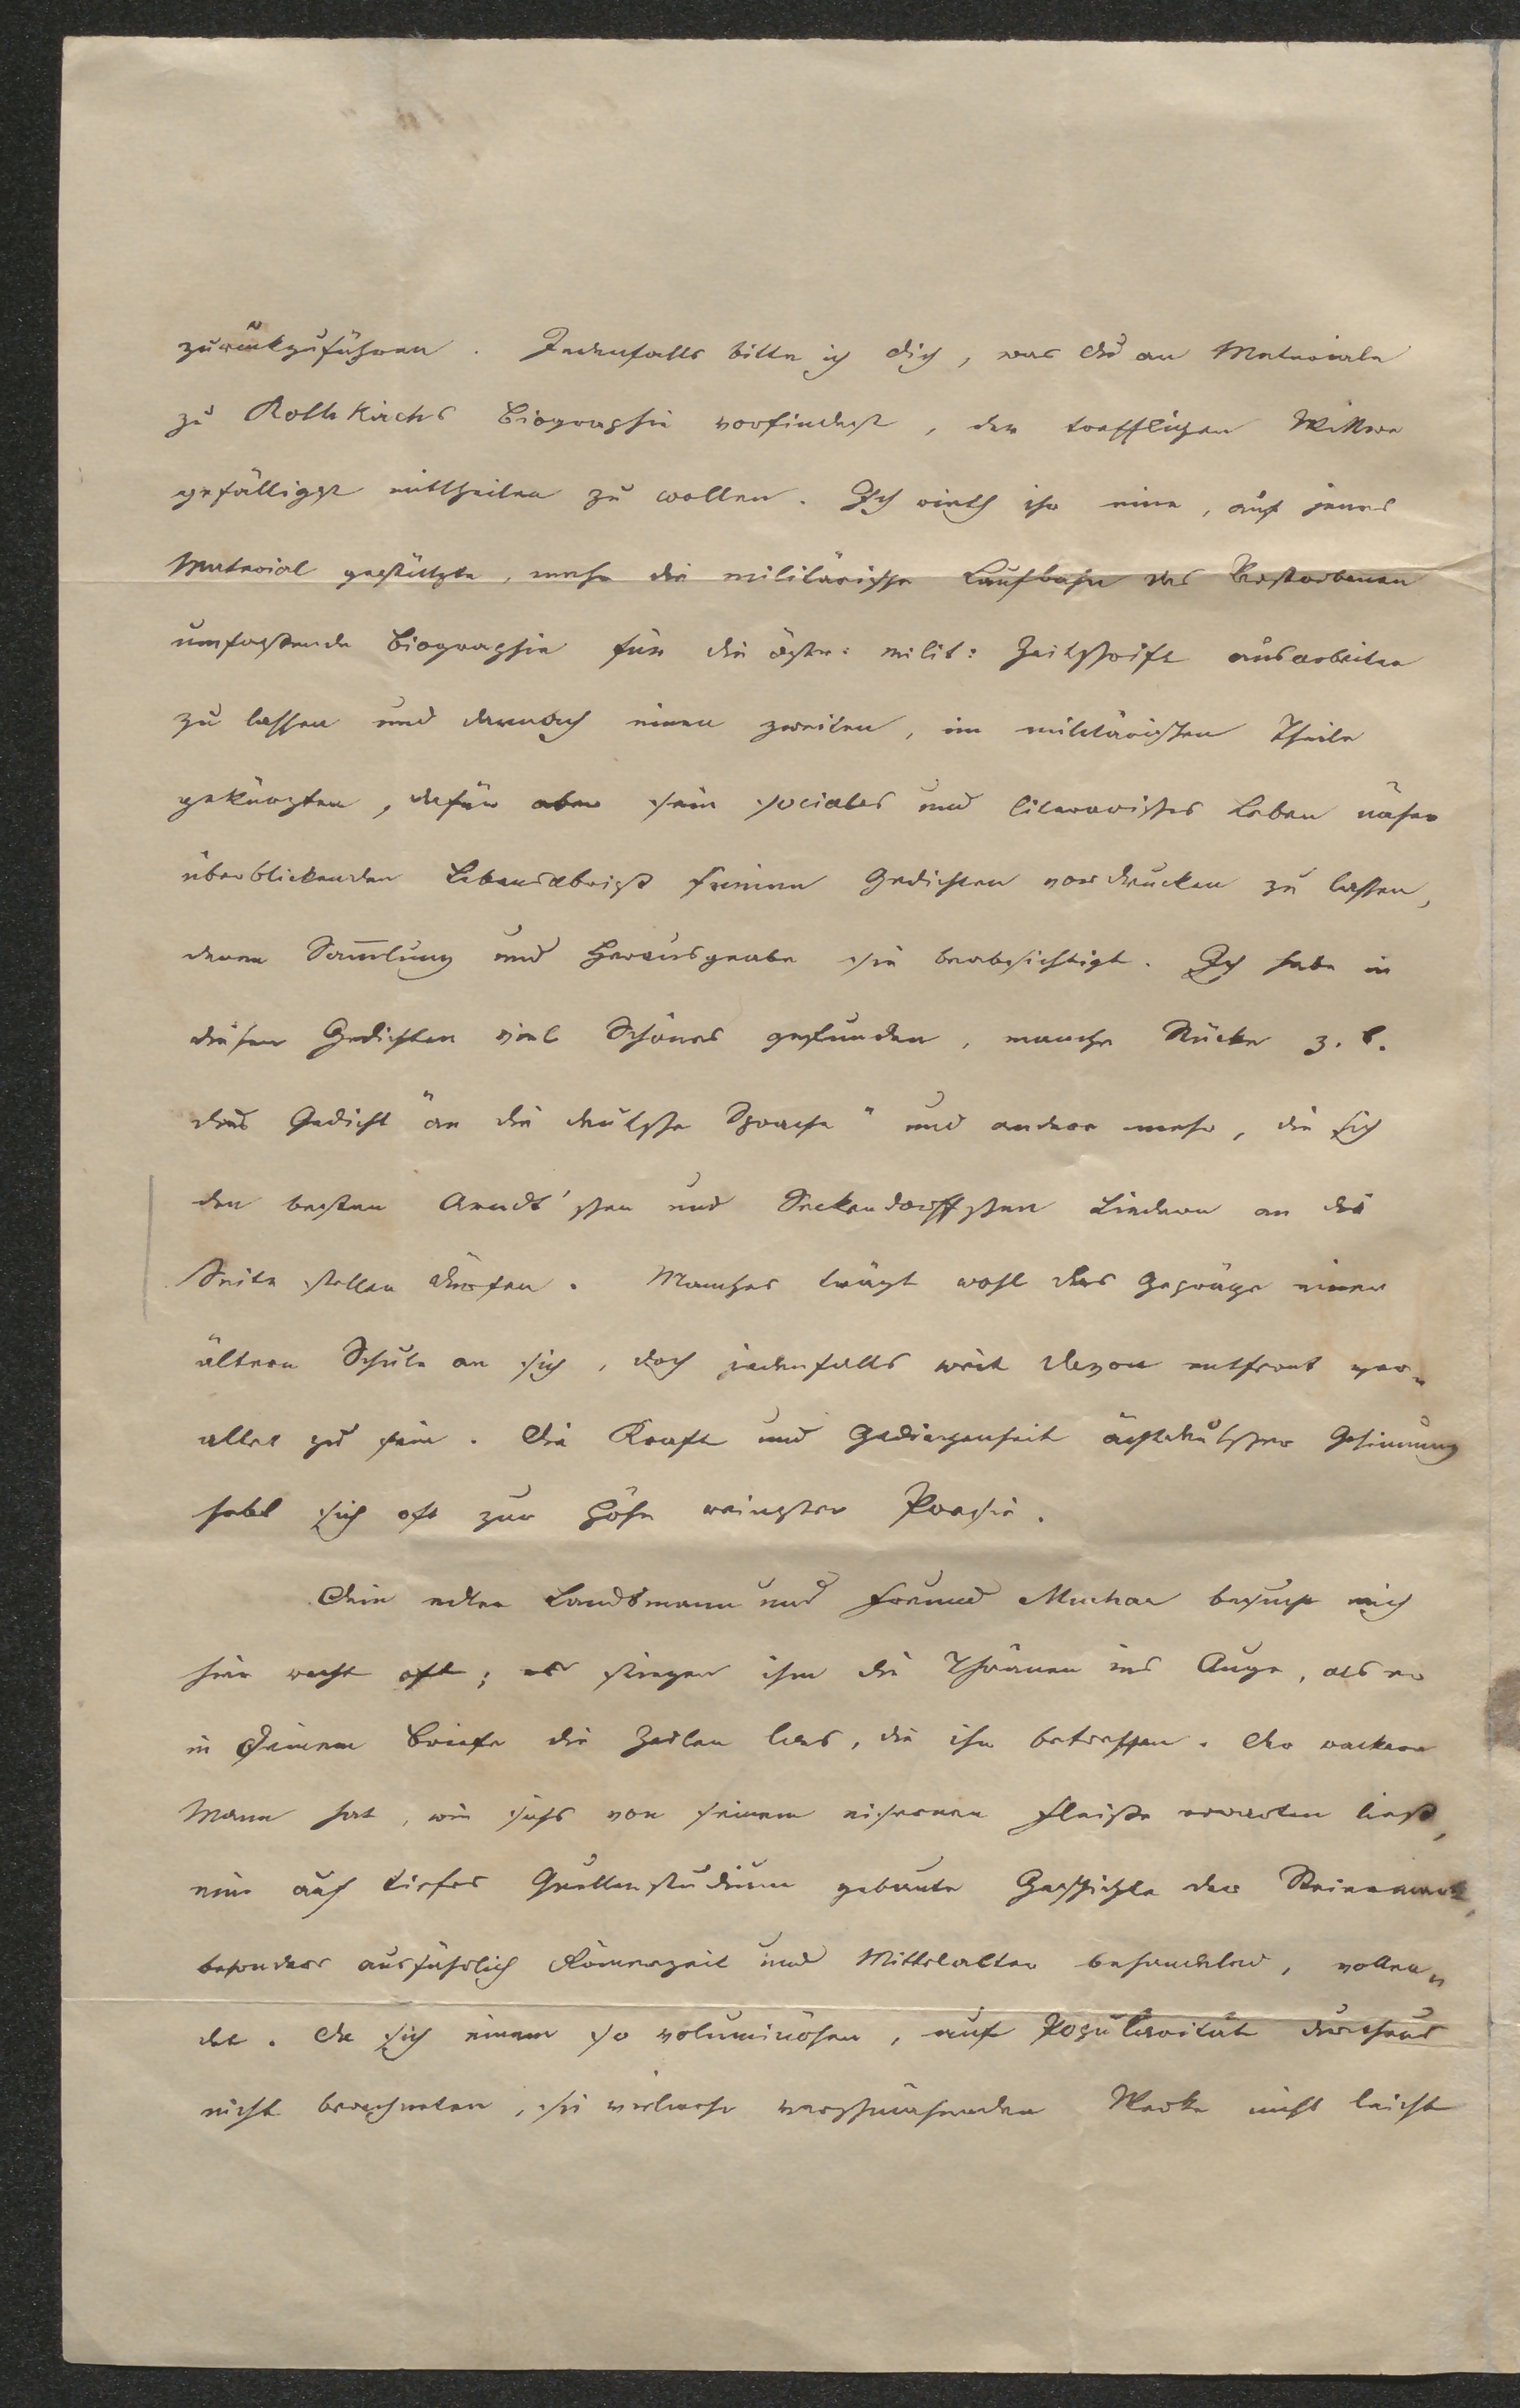 zurückzuführen. Jedenfalls bitte ich dich, was du an Materiale
zu Rothkirchs Biographie vorfindest, der trefflichen Wittwe
gefälligst mittheilen zu wollen. Ich rieth ihr eine, auf jenes
Material gestützte, mehr die militärische Laufbahn des Verstorbenen
umfassende Biographie für die östr: milit: Zeitschrift ausarbeiten
zu lassen und darnach einen zweiten, im militärischen Theile
gekürzten, dafür aber sein sociales und literarisches Leben näher
überblickenden Lebensabriß seinen Gedichten vordrucken zu lassen,
deren Sam̅lung und Herausgabe sie beabsichtigt. Ich habe in
diesen Gedichten viel Schönes gefunden, manche Stücke z. B.
das Gedicht "an die deutsche Sprache" und andere mehr, die sich
den besten Arndt'schen und Seckendorffschen Liedern an die
Seite stellen dürfen. Manches trägt wohl das Gepräge einer
ältern Schule an sich, doch jedenfalls weit davon entfernt ver„
altet zu sein. Die Kraft und Gediegenheit ächtdeutscher Gesinnung
hebt sich oft zur Höhe reinster Poesie.
Dein edler Landsmann und Freund Muchar besucht mich
hier recht oft; es stiegen ihm die Thränen ins Auge, als er
in Deinem Briefe die Zeilen las, die ihn betreffen. Der wackere
Mann hat, wie sichs von seinem eisernen Fleiße erwarten ließ,
eine auf tiefes Quellenstudium gebaute Geschichte der Steiermark,
besonders ausführlich Römerzeit und Mittelalter behandelnd, vollen„
det. Da sich einem so voluminösen, auf Popularität durchaus
nicht berechneten, sie vielmehr verschmähenden Werke nicht leicht